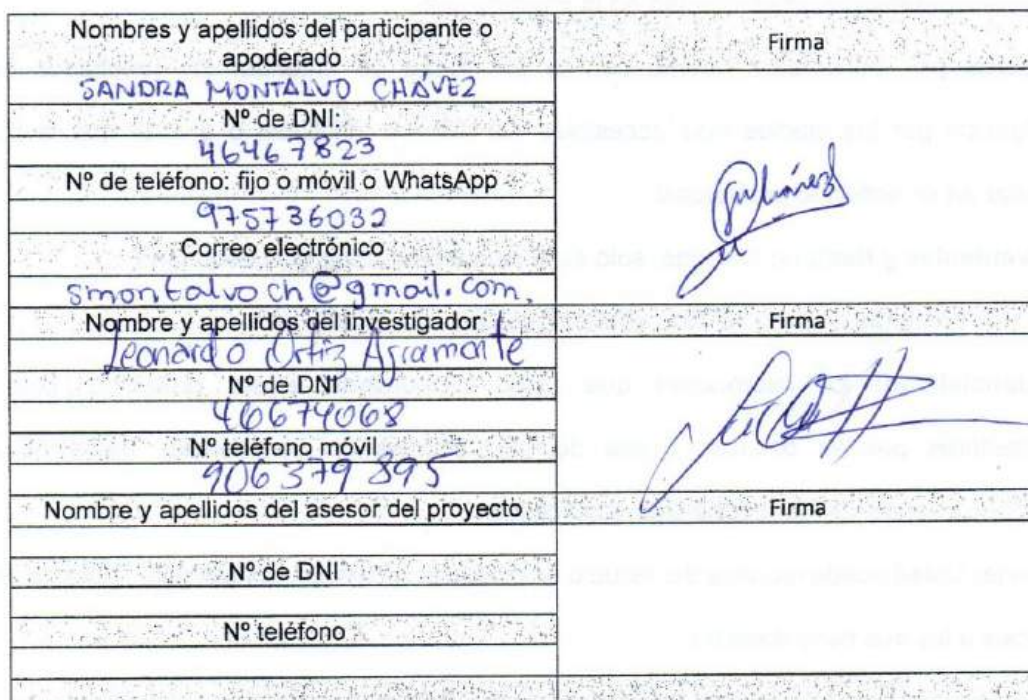 Nombres y apellidos del participante o
apoderado
Firma
SANDRA MONTALVO CHÁVEZ
Nº de DNI:
46467823
Nº de teléfono: fijo o móvil o WhatsApp
975736032
Correo electrónico
smontalvoch@gmail.com.
Nombre y apellidos del investigador
Firma
Leonardo Ortiz Agramonte
Nº de DNI
46674068
Nº teléfono móvil
906 379 895
Nombre y apellidos del asesor del proyecto
Firma
Nº de DNI
Nº teléfono